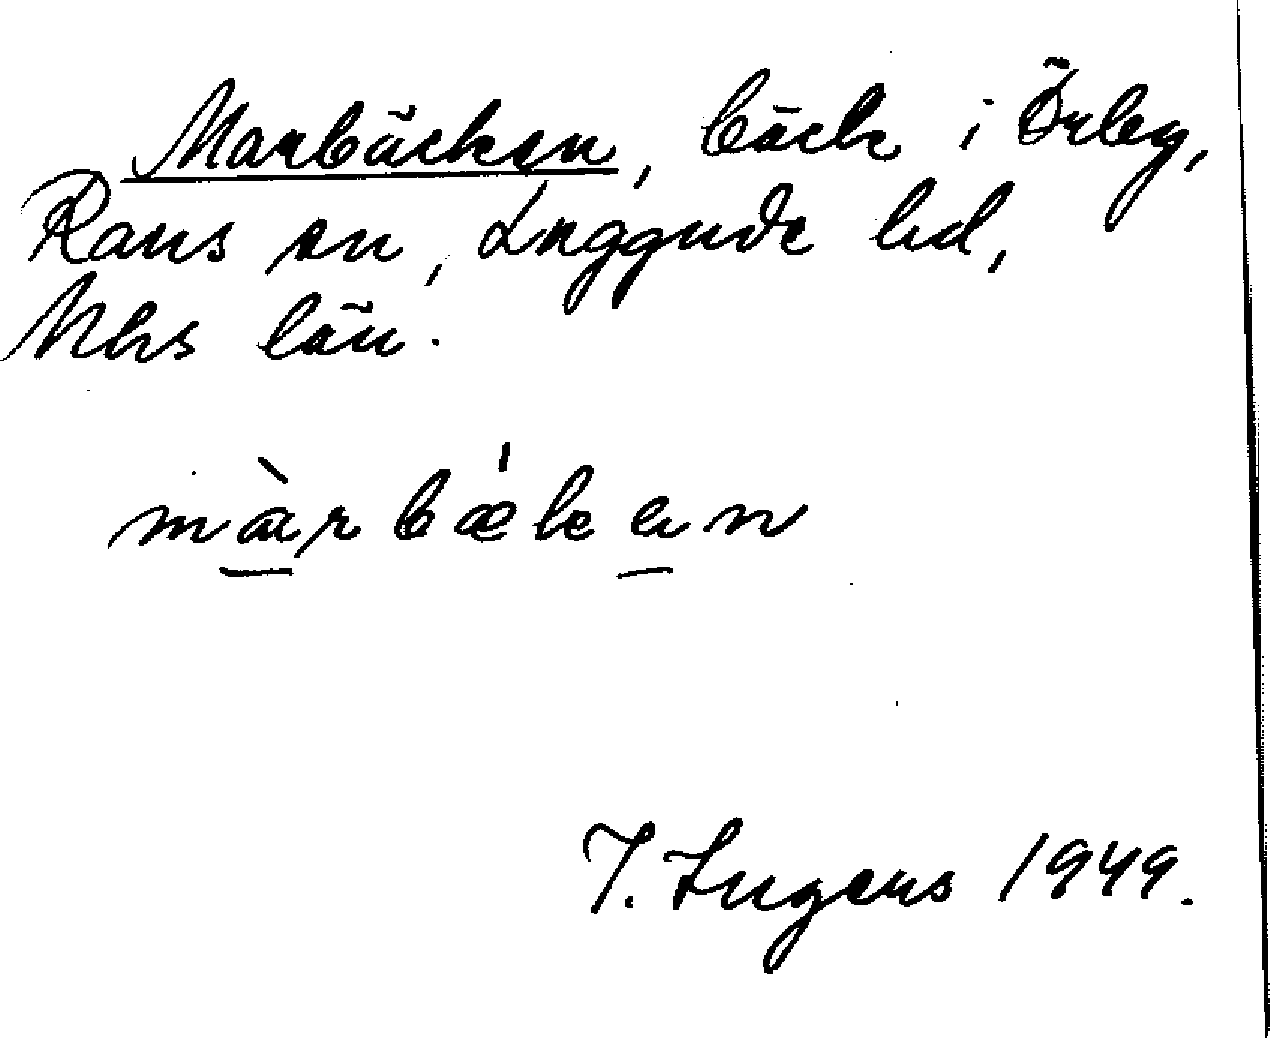 Marbäcken, bäck i Örby,
Raus sn, Luggude hd,
Mhs län.
màrbækan
I. Ingers 1949.